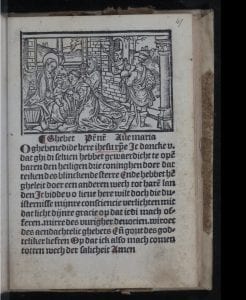 41
¶ Ghebet Pr̃nr̃ Aue maria
O ghebenedide here ihesu xp̃e Ic dancke v.
dat ghi di seluen hebbet gewaerdicht te opẽ
baren den heiligen drie coninghen doer dat
teiken des blinckende sterre Ende hebbet he
gheleit doer een anderen wech tot haer lan
den Ic bidde v o lieue here wilt doch die du
isternisse mijnre consciencie verlichten mit
dat licht dijnre gracie op dat ic di mach of
feren. mirre des vurigher deuocien. wiroec
des aendachtelic ghebets Eñ gout des god
teliker lieften Op dat ick also mach comen
totten wech der salicheit Amen